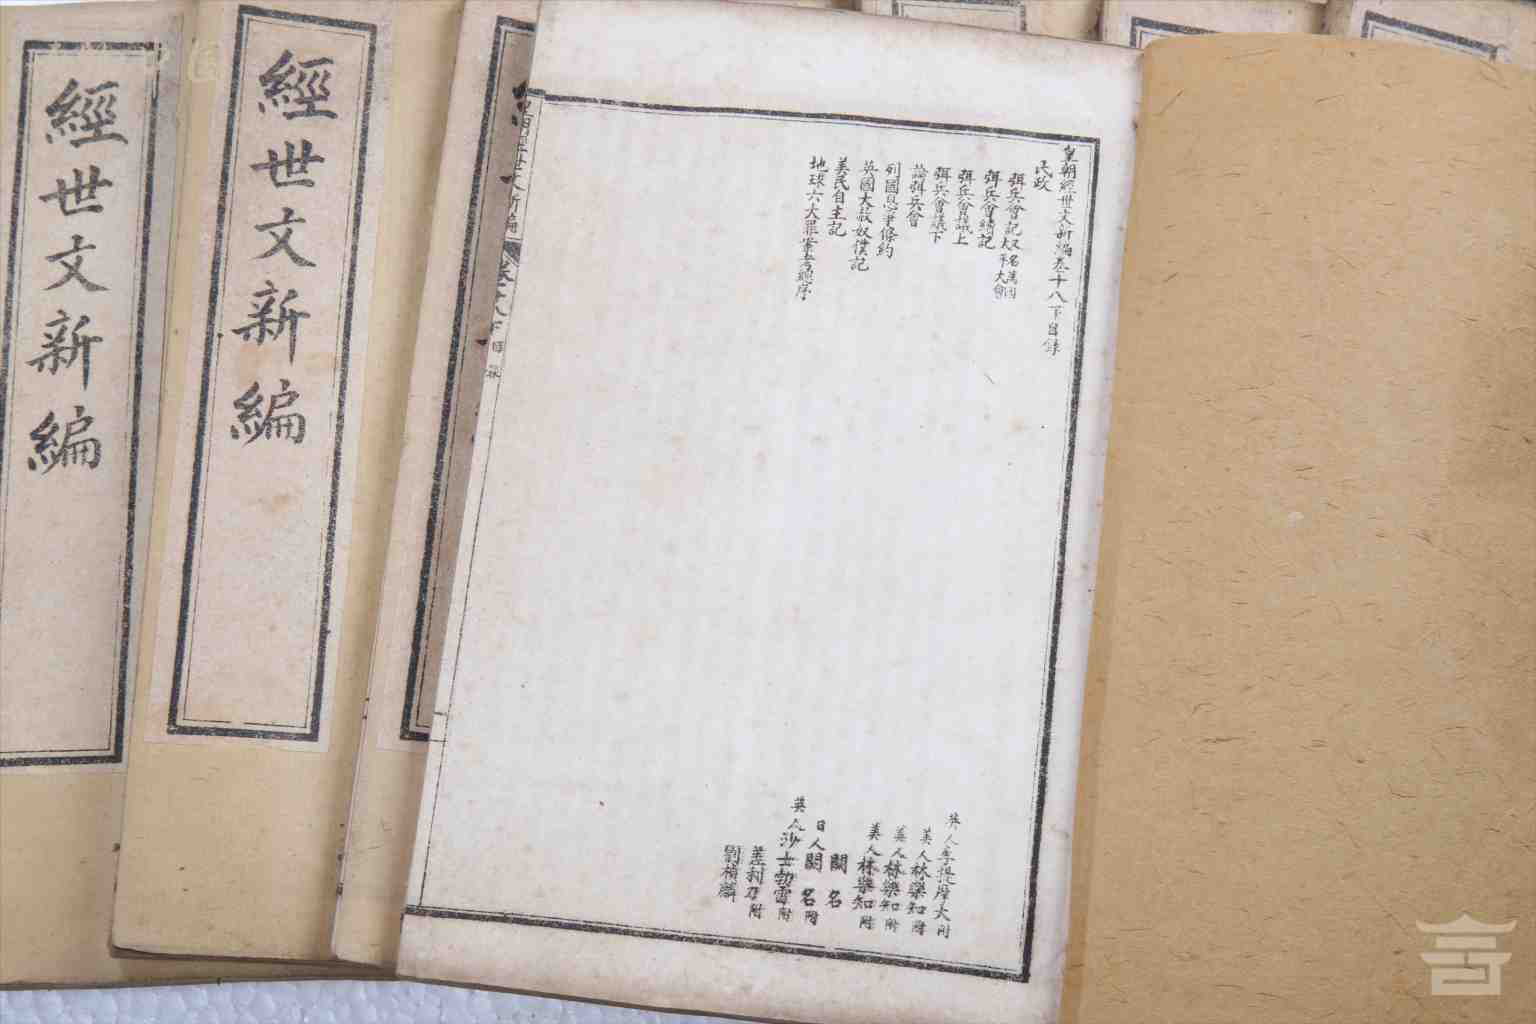 皇朝經世文新編卷十八下目錄
民政
弭兵會記又名萬國太平大會
弭兵會續記
弭兵會議上
弭兵會議下
論弭兵會
列國息爭條約
英國大赦奴僕記
美民自主記
地球六大罪案考總序
英人李提摩太附
美人林樂知附
美人林樂知附
美人林樂知附
闕名
日人闕名附
英人沙士勃雷附
劉楨麟
經世文新編
經世文新編